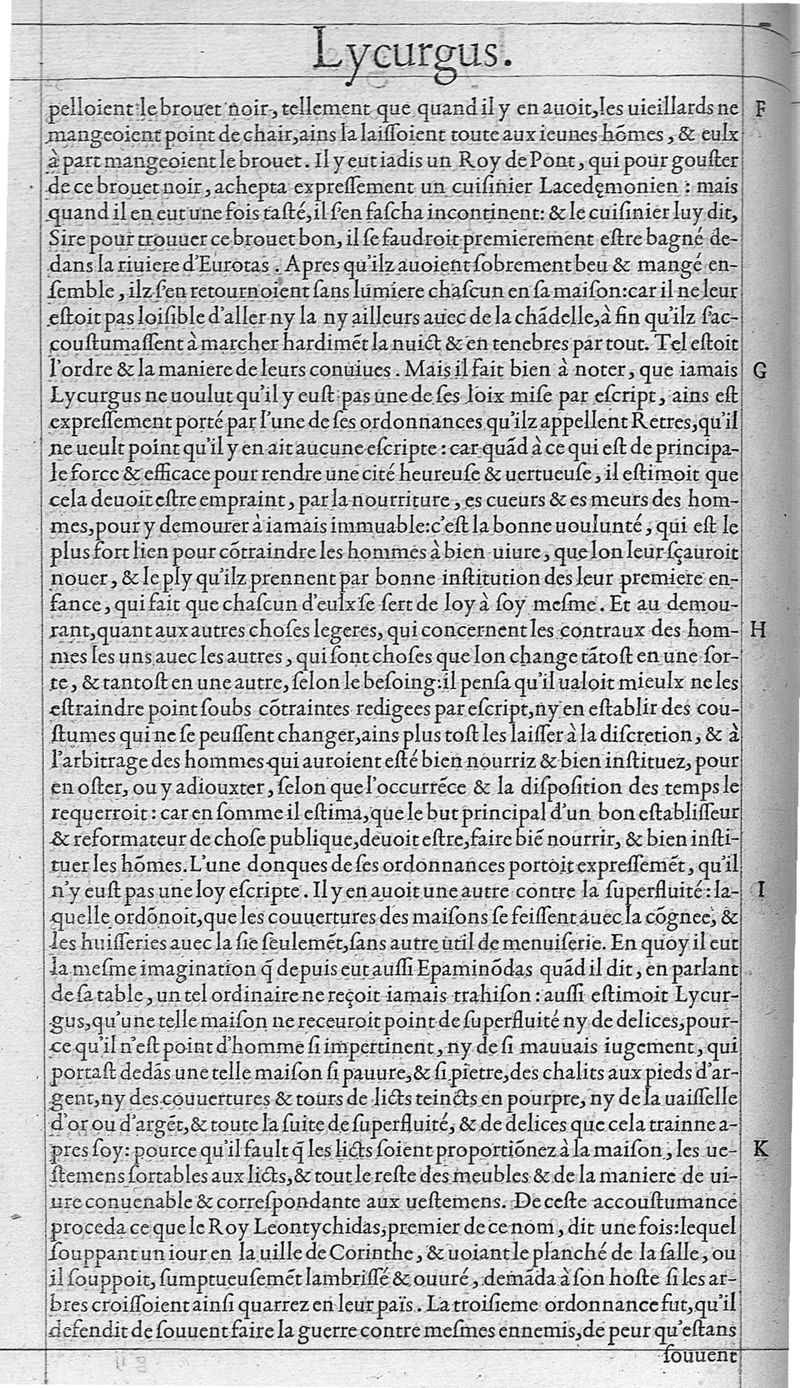 Lycurgus.
pelloient le brouet noir, tellement que quand il y en auoit, les uieillards ne F
mangeoient point de chair, ains la laiſſoient toute aux ieunes hõmes, & eulx
à part mangeoient le brouet. Il y eut iadis un Roy de Pont, qui pour gouſter
de ce brouet noir, achepta expreſſement un cuiſinier Lacedęmonien: mais
quand il en eut une fois taſté, il ſ'en faſcha incontinent: & le cuiſinier luy dit,
Sire pour trouuer ce brouet bon, il ſe faudroit premierement eſtre bagné de-
dans la riuiere d'Eurotas. Apres qu'ilz auoient ſobrement beu & mangé en-
ſemble, ilz ſ'en retournoient ſans lumiere chaſcun en ſa maiſon: car il ne leur
eſtoit pas loiſible d'aller ny la ny ailleurs auec de la chãdelle, à fin qu'ilz ſ'ac-
couſtumaſſent à marcher hardimẽt la nuict & en tenebres par tout. Tel eſtoit
l'ordre & la maniere de leurs conuiues. Mais il fait bien à noter, que iamais G
Lycurgus ne uoulut qu'il y euſt pas une de ſes loix miſe par eſcript, ains eſt
expreſſement porté par l'une de ſes ordonnances qu'ilz appellent Retres, qu'il
ne ueult point qu'il y en ait aucune eſcripte: car quãd à ce qui eſt de principa-
le force & efficace pour rendre une cité heureuſe & uertueuſe, il eſtimoit que
cela deuoit eſtre empraint, par la nourriture, es cueurs & es meurs des hom-
mes, pour y demourer à iamais immuable: c'eſt la bonne uoulunté, qui eſt le
plus fort lien pour cõtraindre les hommes à bien uiure, que lon leur ſçauroit
nouer, & le ply qu'ilz prennent par bonne inſtitution des leur premiere en-
fance, qui fait que chaſcun d'eulx ſe ſert de loy à ſoy meſme. Et au demou-
rant, quant aux autres choſes legeres, qui concernent les contraux des hom- H
mes les uns auec les autres, qui ſont choſes que lon change tãtoſt en une ſor-
te, & tantoſt en une autre, ſelon le beſoing: il penſa qu'il ualoit mieulx ne les
eſtraindre point ſoubs cõtraintes redigees par eſcript, ny en eſtablir des cou-
ſtumes qui ne ſe peuſſent changer, ains plus toſt les laiſſer à la diſcretion, & à
l'arbitrage des hommes qui auroient eſté bien nourriz & bien inſtituez, pour
en oſter, ou y adiouxter, ſelon que l'occurrẽce & la diſpoſition des temps le
requerroit: car en ſomme il eſtima, que le but principal d'un bon eſtabliſſeur
& reformateur de choſe publique, deuoit eſtre, faire biẽ nourrir, & bien inſti-
tuer les hõmes. L'une donques de ſes ordonnances portoit expreſſemẽt, qu'il
n'y euſt pas une loy eſcripte. Il y en auoit une autre contre la ſuperfluité: la- I
quelle ordõnoit, que les couuertures des maiſons ſe feiſſent auec la cõgnee, &
les huiſſeries auec la ſie ſeulemẽt, ſans autre util de menuiſerie. En quoy il eut
la meſme imagination q̃ depuis eut auſſi Epaminõdas quãd il dit, en parlant
de ſa table, un tel ordinaire ne reçoit iamais trahiſon: auſſi eſtimoit Lycur-
gus, qu'une telle maiſon ne receuroit point de ſuperfluité ny de delices, pour-
ce qu'il n'eſt point d'homme ſi impertinent, ny de ſi mauuais iugement, qui
portaſt dedãs une telle maiſon ſi pauure, & ſi pietre, des chalits aux pieds d'ar-
gent, ny des couuertures & tours de licts teincts en pourpre, ny de la uaiſſelle
d'or ou d'argẽt, & toute la ſuite de ſuperfluité, & de delices que cela trainne a-
pres ſoy: pource qu'il fault q̃ les licts ſoient proportiõnez à la maiſon, les ue- K
ſtemens ſortables aux licts, & tout le reſte des meubles & de la maniere de ui-
ure conuenable & correſpondante aux ueſtemens. De ceſte accouſtumance
proceda ce que le Roy Leontychidas, premier de ce nom, dit une fois: lequel
ſouppant un iour en la uille de Corinthe, & uoiant le planché de la ſalle, ou
il ſouppoit, ſumptueuſemẽt lambriſſé & ouuré, demãda à ſon hoſte ſi les ar-
bres croiſſoient ainſi quarrez en leur païs. La troiſieme ordonnance fut, qu'il
defendit de ſouuent faire la guerre contre meſmes ennemis, de peur qu'eſtans
ſouuent